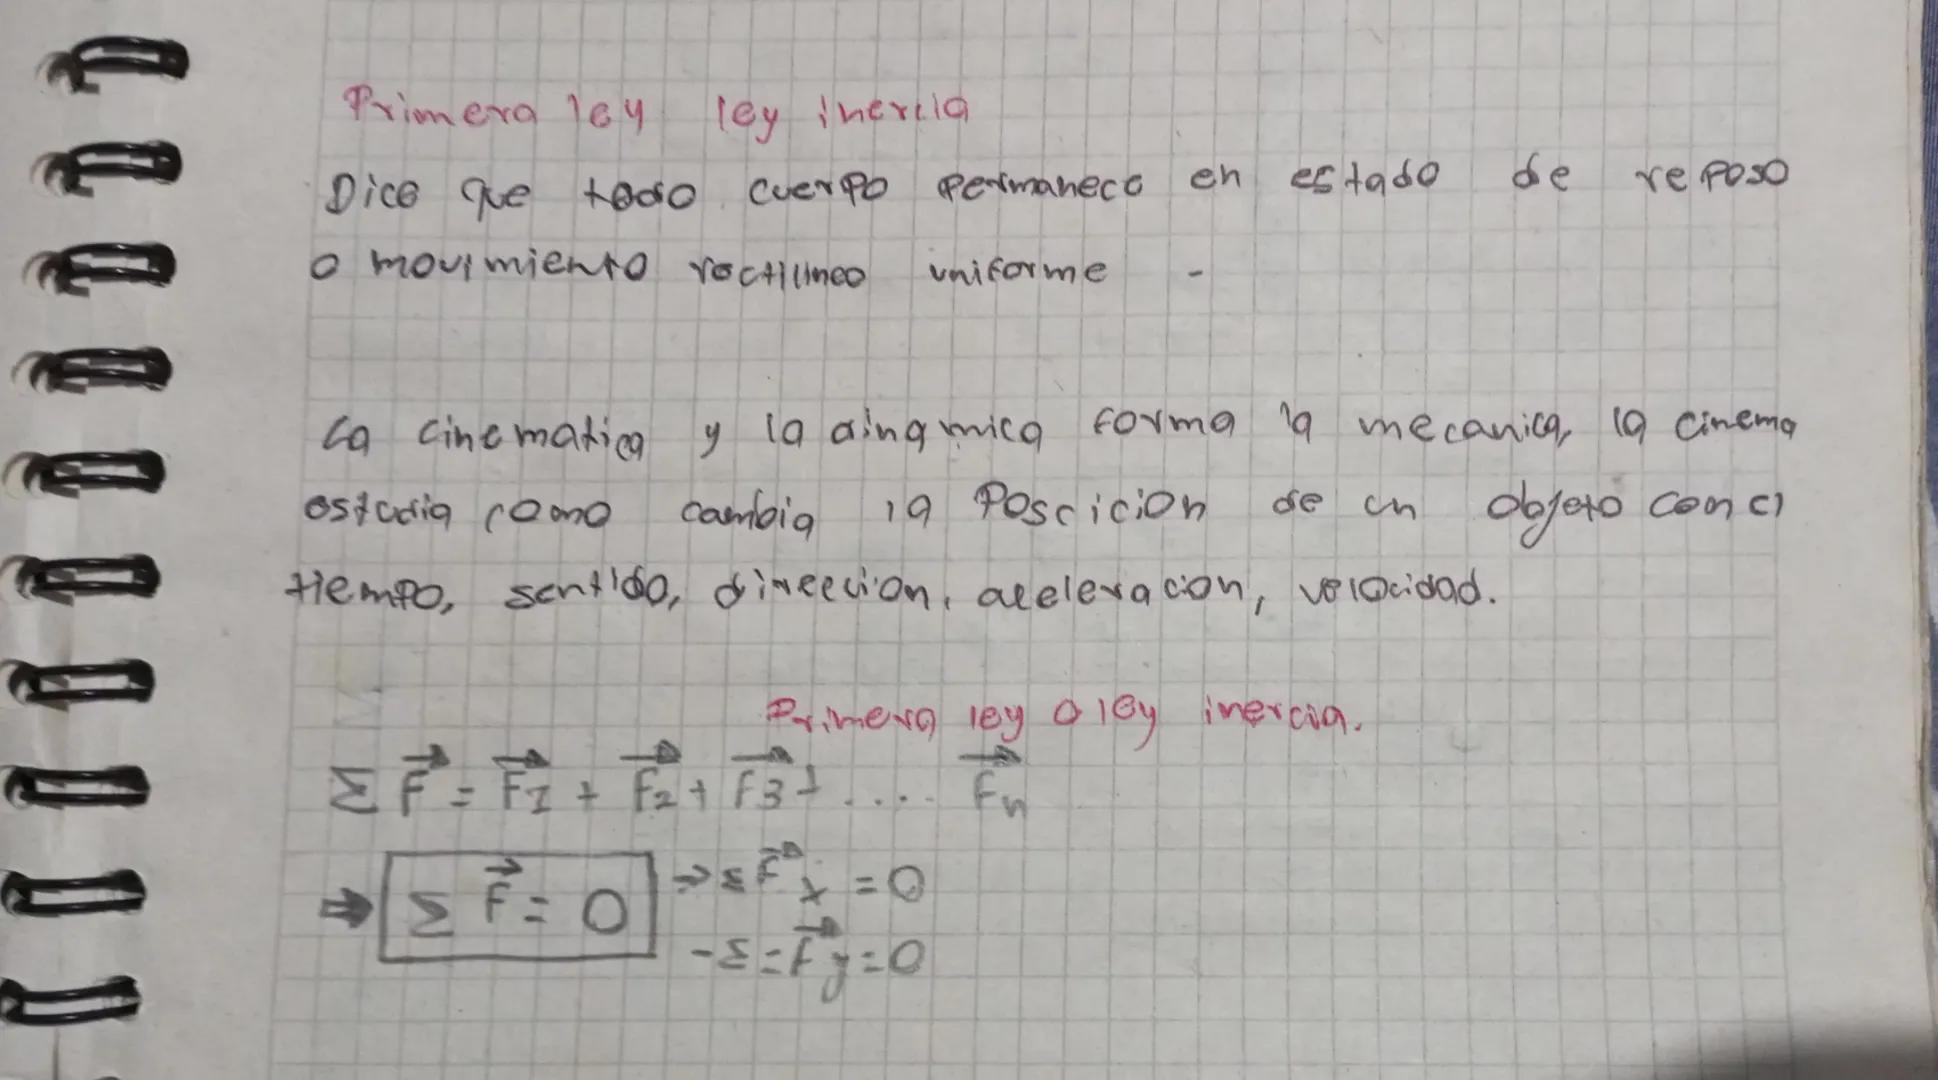 Primera ley ley inercia
Dice que todo cuerpo permanece en estado de reposo
o movimiento rectilineo uniforme -
La cinematica y la dinamica forma la mecanica, la cinema
estudia como cambia la Poscicion de un objeto con el
tiempo, sentido, direecion, aceleracion, velocidad.
Primera ley o ley inercia.
Σ F⃗ = F⃗1 + F⃗2 + F⃗3 + .... F⃗n
⇒ Σ F⃗ = 0 → Σ F⃗x = 0
- Σ = F⃗y = 0